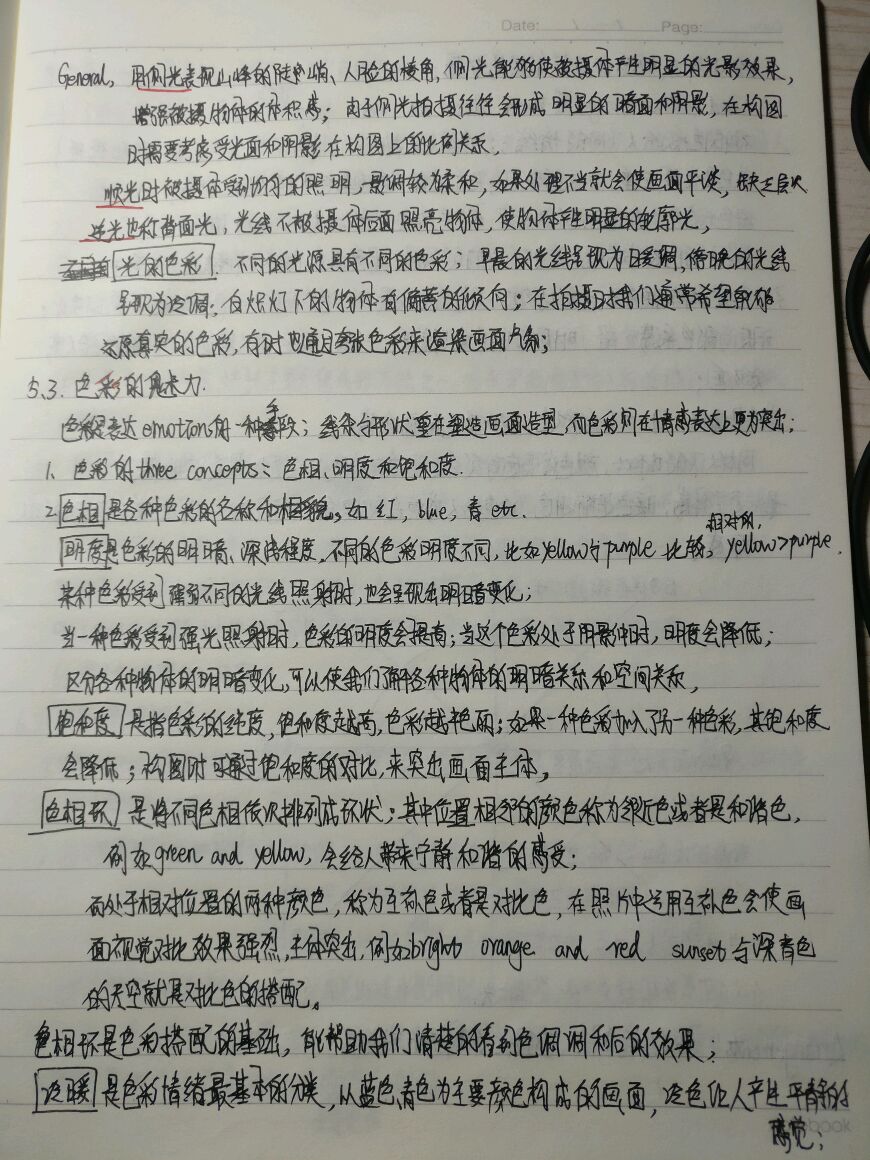 Date: Page:
General, 用侧光表现山峰的陡峭、人脸的棱角,侧光能够使被摄体产生明显的光影效果,
增强被摄物体的体积感;由于侧光拍摄往往会形成明显的暗面和阴影,在构图
时需要考虑受光面和阴影在构图上的比例关系,
顺光时被摄体受到均匀的照明,影调较为柔和,如果处理不当就会使画面平淡,缺乏层次
逆光也称背面光,光线从被摄体后面照亮物体,使物体产生明显的轮廓光,
光的色彩. 不同的光源具有不同的色彩;早晨的光线呈现为暖调,傍晚的光线
呈现为冷调,白炽灯下的物体有偏黄的倾向;在拍摄时我们通常希望能够
还原真实的色彩,有时也通过夸张色彩来渲染画面气氛;
5.3. 色彩的魅力.
色彩是表达emotion的一种手段;线条与形状重在塑造画面造型,而色彩则在情感表达上更为突出;
1. 色彩的three concepts: 色相、明度和饱和度.
2. 色相是各种色彩的名称和相貌。如红, blue, 青 etc.
相对的,
明度是色彩的明暗、深浅程度,不同的色彩明度不同,比如yellow与purple比较, yellow>purple.
某种色彩受到强弱不同的光线照射时,也会呈现出明暗变化;
当一种色彩受到强光照射时,色彩的明度会提高;当这个色彩处于阴影中时,明度会降低;
区分各种物体的明暗变化,可以使我们了解各种物体的明暗关系和空间关系,
饱和度是指色彩的纯度,饱和度越高,色彩越艳丽;如果一种色彩加入了另一种色彩,其饱和度
会降低;构图时可通过饱和度的对比,来突出画面主体。
色相环是将不同色相依次排列成环状;其中位置相邻的颜色称为邻近色或者是和谐色,
例如green and yellow, 会给人带来宁静和谐的感受;
而处于相对位置的两种颜色,称为互补色或者是对比色,在照片中运用互补色会使画
面视觉对比效果强烈,主体突出,例如bright orange and red sunset与深青色
的天空就是对比色的搭配。
色相环是色彩搭配的基础,能帮助我们清楚的看到色调调和后的效果;
冷暖是色彩情绪最基本的分类,以蓝色、青色为主要颜色构成的画面,冷色让人产生平静的
感觉;